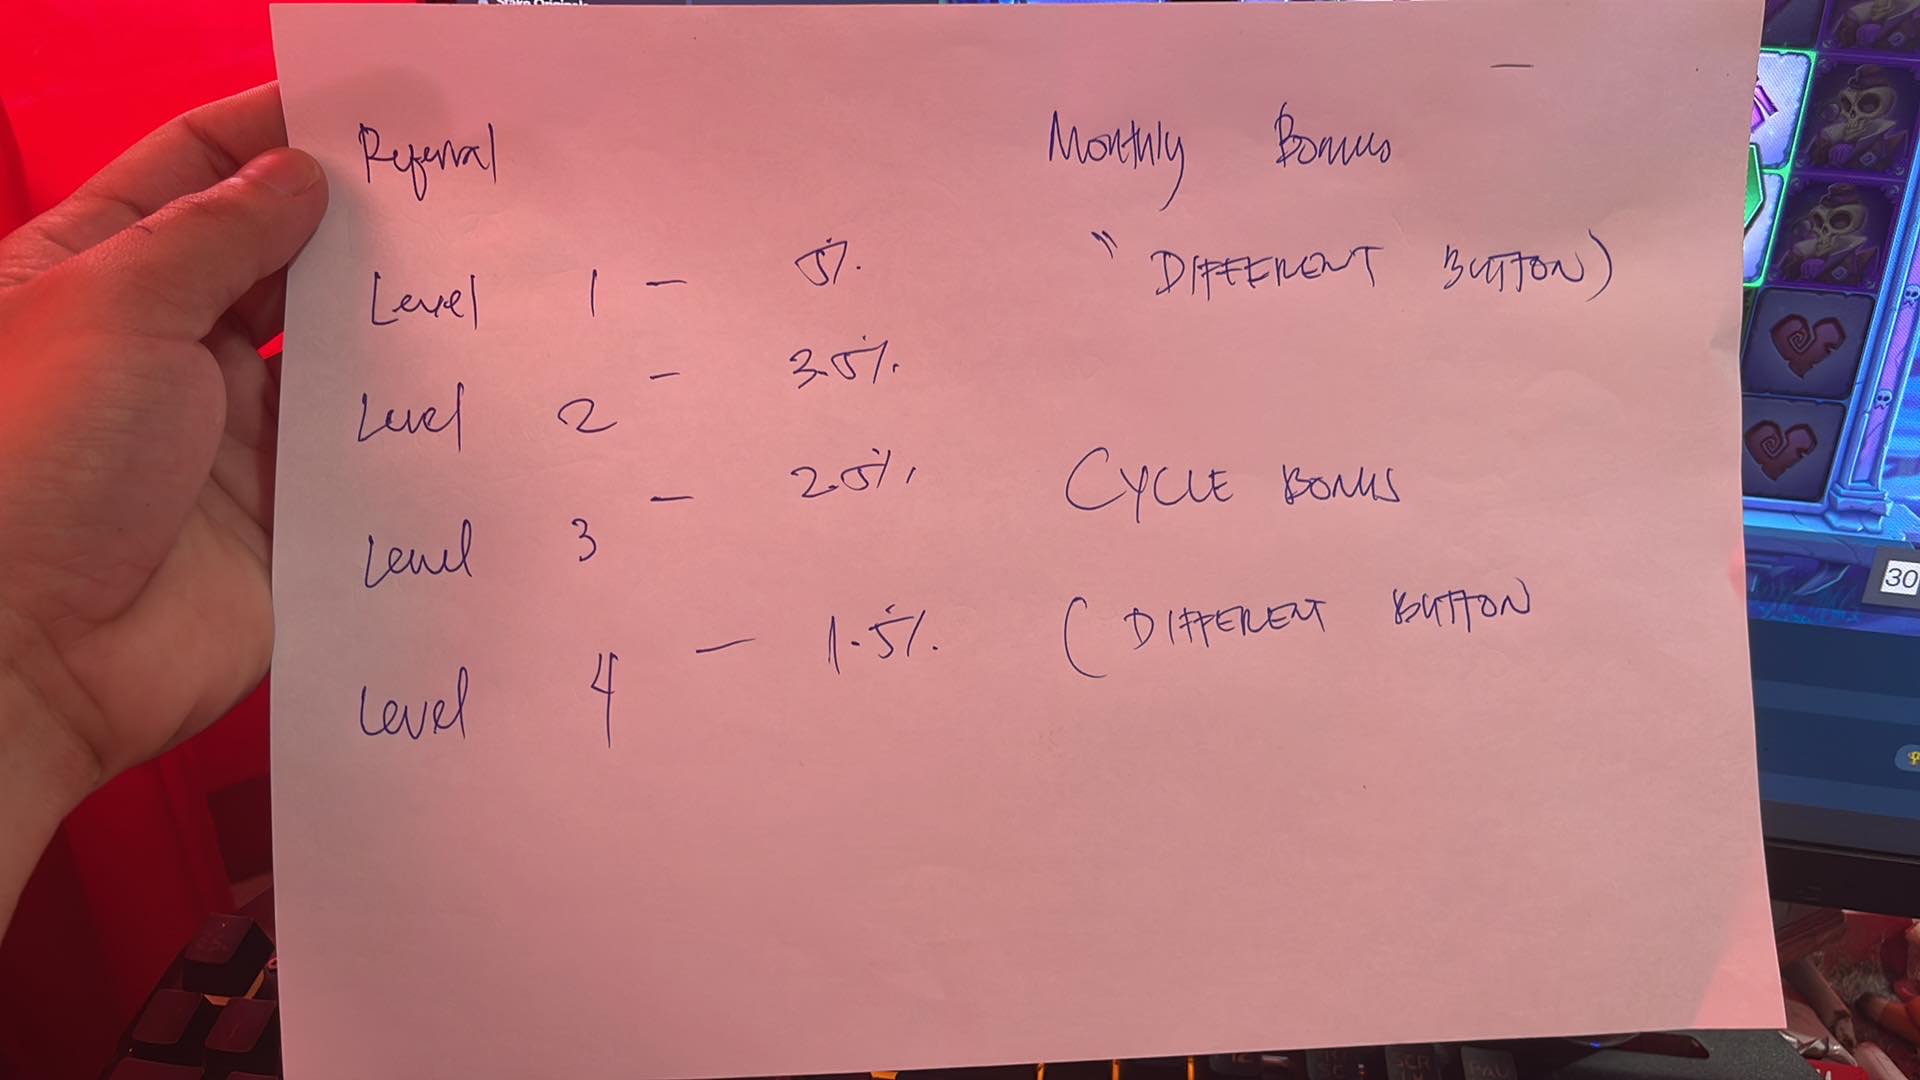 Stake Originals
Referral
Level 1 - 5%
Level 2 - 3.5%
Level 3 - 2.5%
Level 4 - 1.5%
Monthly Bonus
" DIFFERENT BUTTON)
CYCLE BONUS
( DIFFERENT BUTTON
30